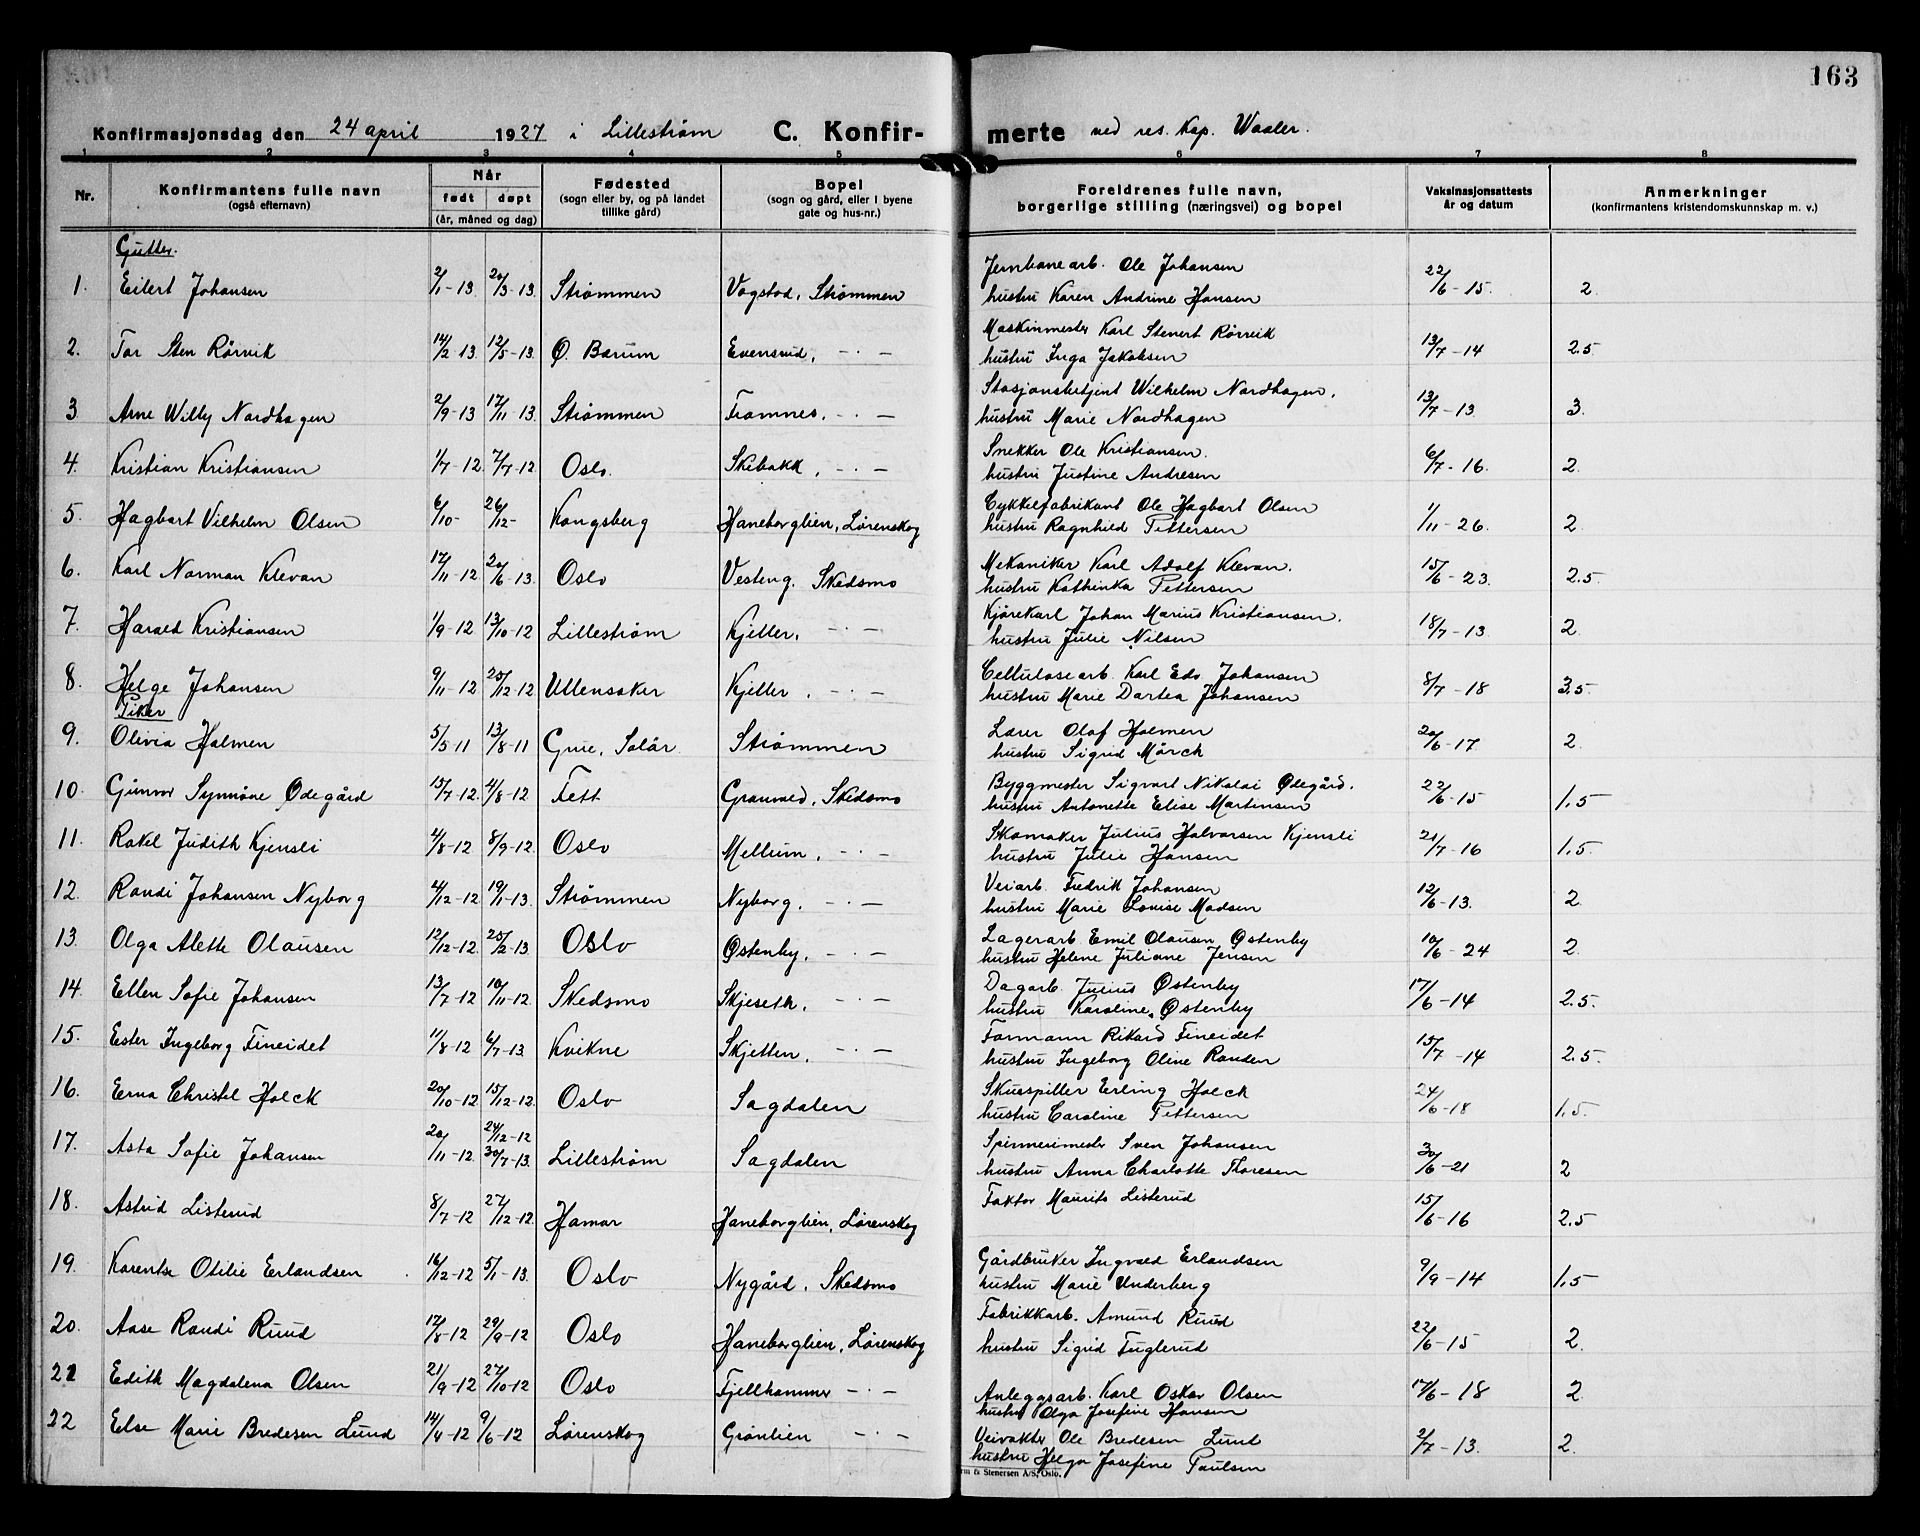 163
Konfirmasjonsdag den 24 april 1927 i Lillestrøm C. Konfir- merte ved res. kap. Waaler.
1 2 3 4 5 6 7 8
Nr. Konfirmantens fulle navn (også efternavn) Når født døpt (år, måned og dag) Fødested (sogn eller by, og på landet tillike gård) Bopel (sogn og gård, eller i byene gate og hus-nr.) Foreldrenes fulle navn, borgerlige stilling (næringsvei) og bopel Vaksinasjonsattests år og datum Anmerkninger (konfirmantens kristendomskunnskap m. v.)
Gutter.
1. Eilert Johansen 2/1-13. 20/3-13. Strømmen Vogstad, Strømmen Jernbanearb. Ole Johansen
hustru Karen Andrine Hansen 22/6-15. 2.
2. Tor Sten Rørvik 14/2-13. 12/5-13. Ø. Bærum Evensrud, -·- Maskinmester Karl Stenert Rørvik
hustru Inga Jakobsen 13/7-14 2.5
3 Arne Willy Nordhagen 2/9-13 17/11-13. Strømmen Framnes, -·- Stasjonsbetjent Wilhelm Nordhagen,
hustru Marie Nordhagen 13/7-13 3.
4. Kristian Kristiansen 1/7-12. 7/7-12. Oslo. Skibakk, -·- Snekker Ole Kristiansen.
hustru Justine Andresen 6/7-16. 2.
5. Hagbart Vilhelm Olsen 6/10- 26/12- Kongsberg Haneborglien, Lørenskog Cykkelfabrikant Ole Hagbart Olsen
hustru Ragnhild Pettersen 1/11-26. 2.
6. Karl Norman Klevan 17/11-12. 20/6-13. Oslo Vesteng. Skedsmo Mekaniker Karl Adolf Klevan.
hustru Kathinka Pettersen 15/6-23. 2.5.
7. Harald Kristiansen 1/9-12 13/10-12 Lillestrøm Kjeller, -·- Kjørekarl Johan Marius Kristiansen.
hustru Julie Nilsen 18/7-13 2.
8. Helge Johansen 9/11-12 25/12-12 Ullensaker Kjeller. -·- Cellulosearb. Karl Edv. Johansen
hustru Marie Dartea Johansen 8/7-18 3.5.
Piker
9. Olivia Holmen 5/5-11 13/8-11 Grue, Solør Strømmen Lærer Olaf Holmen
hustru Sigrid Mørch 20/6-17 2.
10. Gunvor Synnøve Ødegård 15/7-12. 4/8-12 Fett Granvold, Skedsmo Byggmester Sigvart Nikolai Ødegård.
hustru Antonette Elise Martinsen 22/6-15 1.5
11. Rakel Judith Kjensli 4/8-12 8/9-12. Oslo Mellum, -·- Skomaker Julius Halvorsen Kjensli
hustru Julie Hansen 21/7-16 1.5.
12. Randi Johansen Nyborg 4/12-12 19/1-13. Strømmen Nyborg. -·- Veiarb. Fredrik Johansen
hustru Marie Lovise Madsen 12/6-13. 2.
13. Olga Alette Olausen 12/12-12. 25/2-13 Oslo Østenby. -·- Lagerarb Emil Olausen Østenby
hustru Helene Juliane Jensen 10/6-24 2.
14. Ellen Sofie Johansen 13/7-12 10/11-12. Skedsmo Skjeseth. -·- Dagarb. Julius Østenby
hustru Karoline Østenby 17/6-14 2.5.
15. Ester Ingeborg Fineidet 11/8-12 6/7-13. Kvikne Skjetten. -·- Formann Rikard Fineidet
hustru Ingeborg Oline Randen 15/7-14 2.5.
16. Erna Christel Holck 20/10-12 15/12-12. Oslo Sagdalen Skuespiller Erling Holck
hustru Caroline Pettersen 24/6-18 1.5.
17. Asta Sofie Johansen 20/11-12. 24/12-12 30/7-13. Lillestrøm Sagdalen Spinnerimester Sven Johansen
hustru Anna Charlotte Thoresen 30/6-21 2
18. Astrid Listerud 8/7-12 27/12-12. Hamar Haneborglien, Lørenskog Faktor Maurits Listerud 15/6-16 2.5
19. Karentse Otilie Erlandsen 16/12-12 5/1-13. Oslo Nygård. Skedsmo Gårdbruker Ingvald Erlandsen
hustru Marie Underberg 9/9-14 1.5
20. Aase Randi Ruud 17/8-12 29/9-12 Oslo Haneborglien, Lørenskog Fabrikkarb. Amund Ruud
hustru Sigrid Fuglerud 22/6-15 2.
21 Edith Magdalena Olsen 21/9-12 27/10-12 Oslo Fjellhammer -·- Anleggsarb. Karl Oskar Olsen
hustru Olga Josefine Hansen 17/6-18 2
22 Else Marie Bredesen Lund 14/4-12 9/6-12 Lørenskog Grønlien -·- Veivokter Ole Bredesen Lund
hustru Helga Josefine Paulsen 2/7-13. 2.
rm & Stenersen A/S, Oslo.